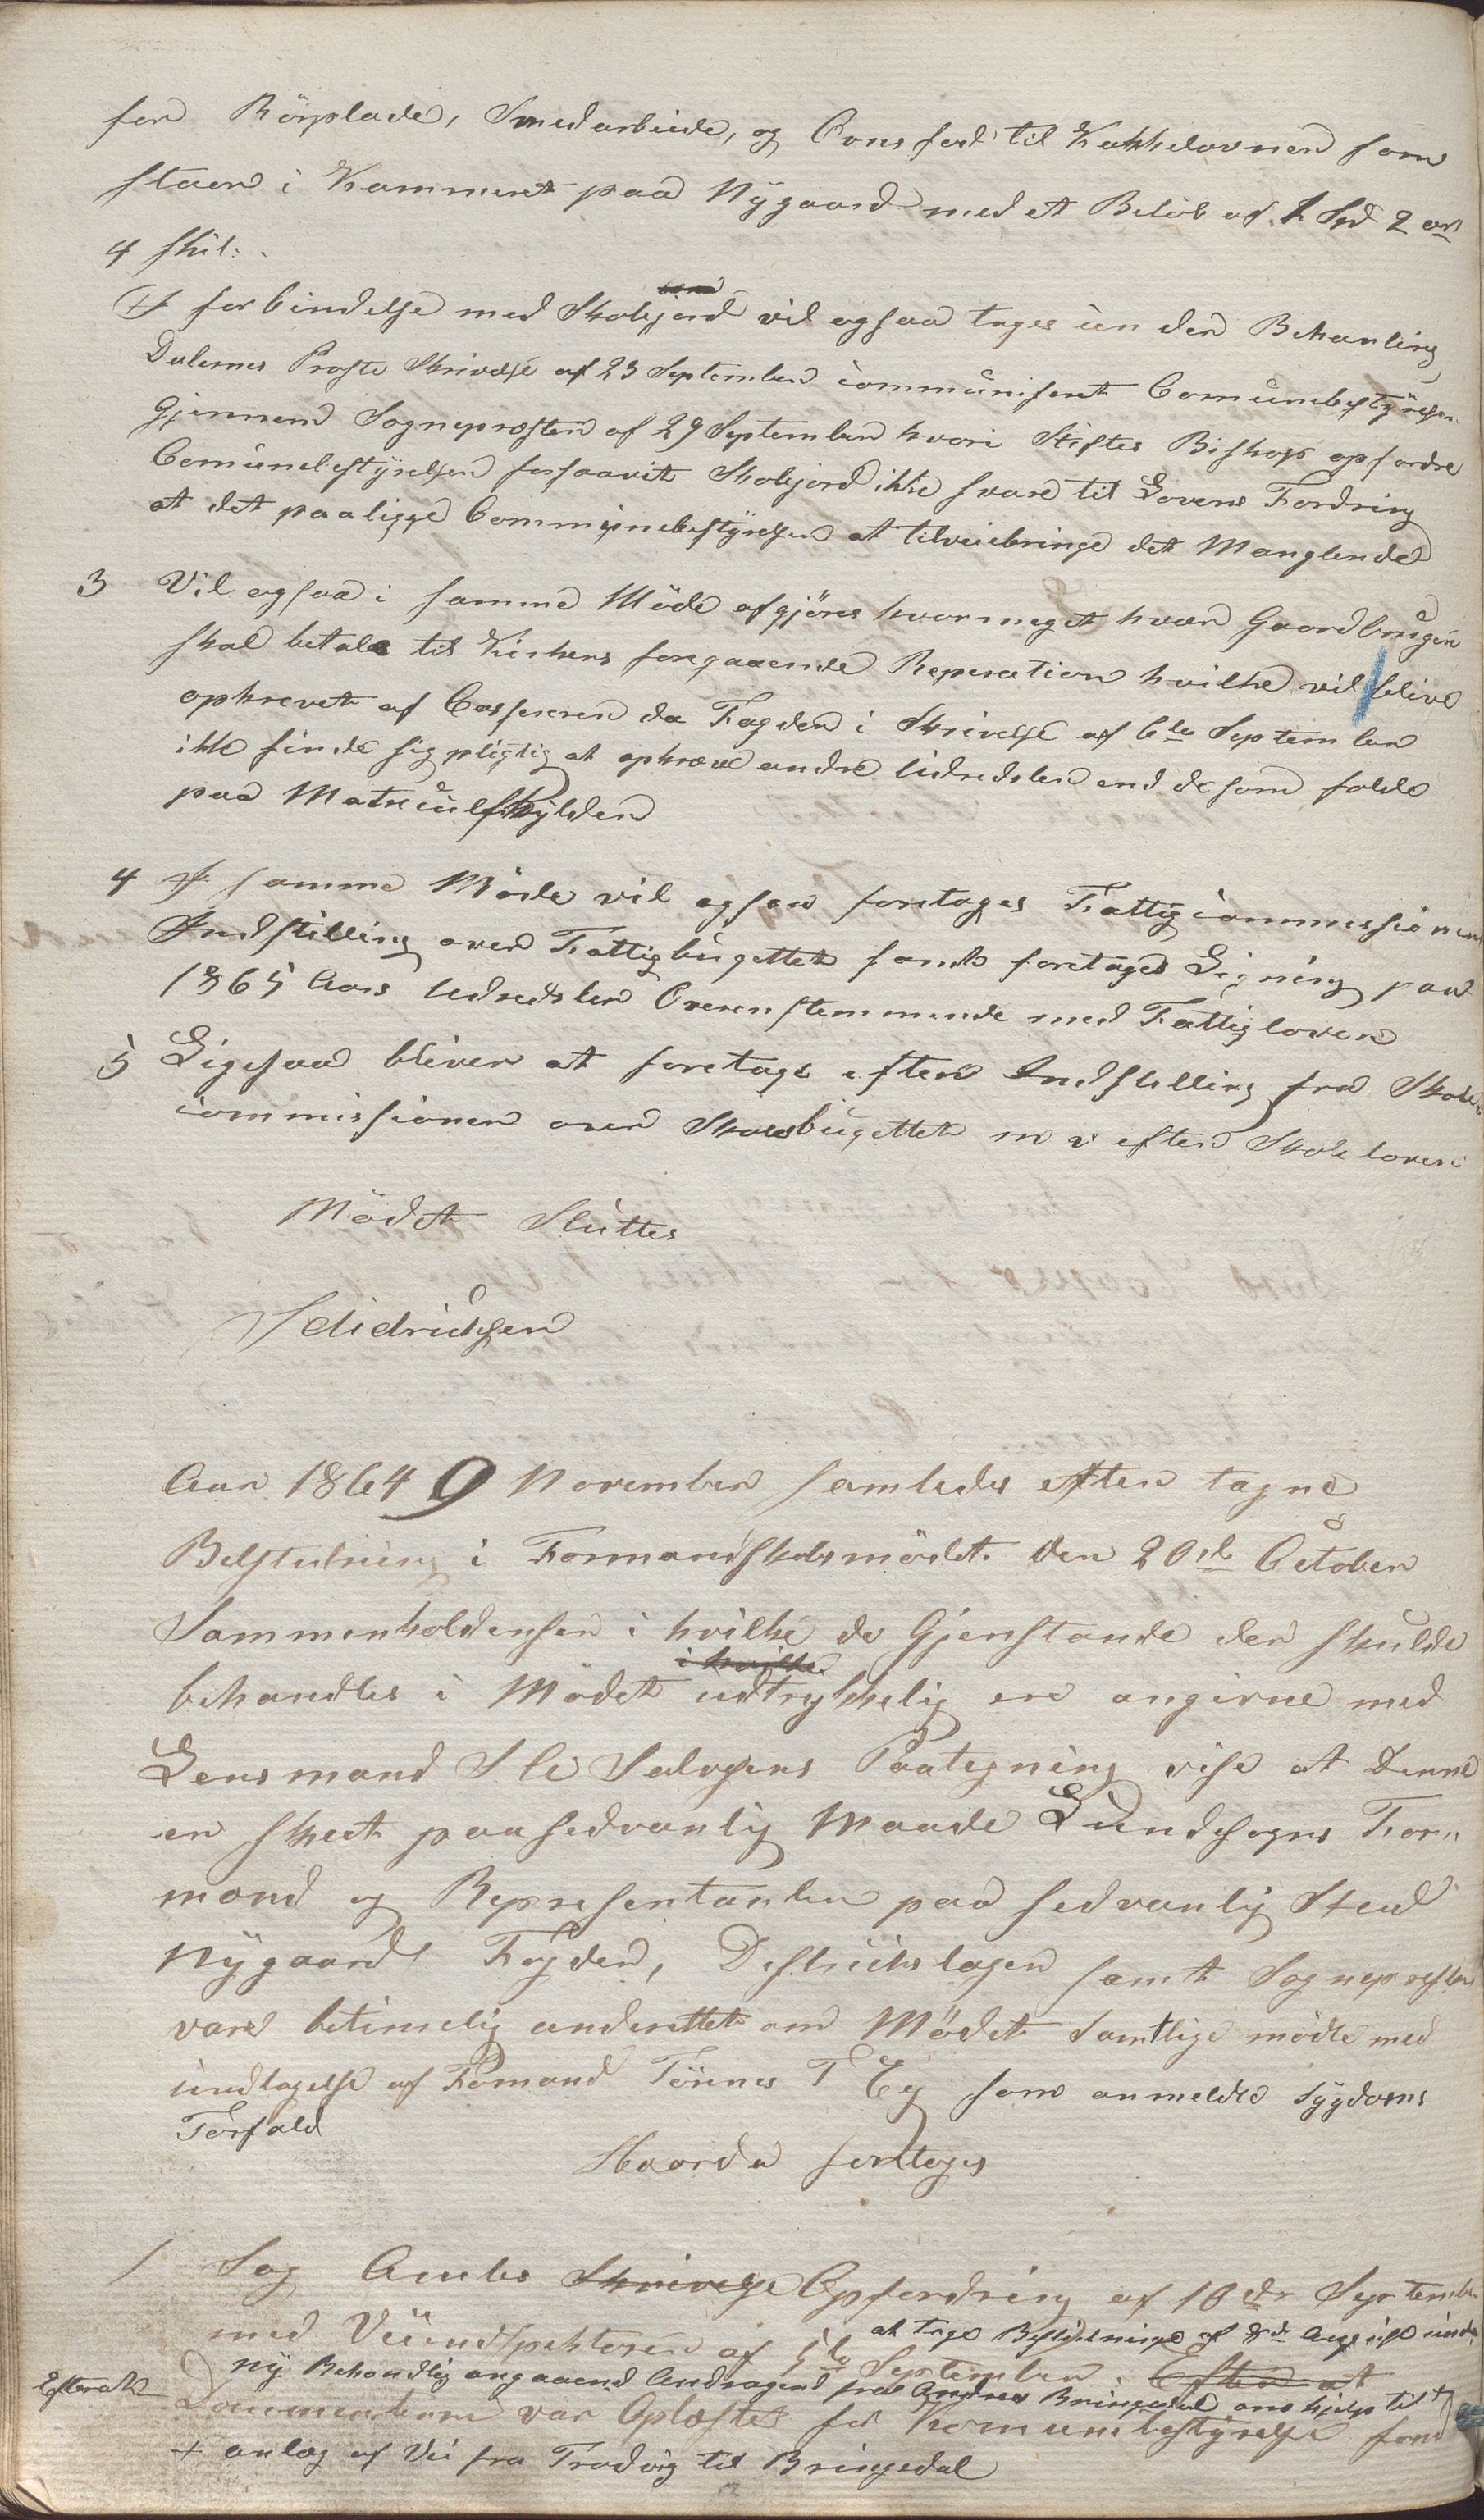 for Rörplade, Smedarbiede, og Ovnsfod til Kakkelovnen som
staar i Kammeret paa Nÿgaard med et Belöb af 1 Spd 2 ort
4 skil:
I forbindelse med Skolejord vil ogsaa tages under Behanling
Dalernes Proste Skrivelse af 23 September communiseret Comunebestÿrelsen
Gjennem Sognepresten af 29 September hvori Stiftes Biskop opfordre
Comunebestÿrelsen forsaavit Skolejord ikke svare til Lovens Fordring
at det paaligge Communebestÿrelsen at tilveiebringe det Manglende
3 Vil ogsaa i samme Möde afgjöres hvormeget hver Gaardbruger
skal betale til Kirkens foregaaende Reperation hvilke vil blive
opkrevet af Casseren da Fogden i Skrivelse af 6te September
ikke finde sig pligtig at opkræve andre Udredsler end de som falde
paa Matriculskÿlden
4 I samme Möde vil ogsaa foretages Fattigcommissionens
Indstilling over Fattigbugettet samt foretages Ligning paa
1865 Aars Udredsler Overenstemmende med Fattigloven
5 Ligesaa bliver at foretage efter Indstilling fra Skole
commissionen over Skolebugettet m v efter Skoleloven
Mödet Sluttes
Sdidriksen
Aar 1864 9 November samledes efter tagne
Beslutning i Formandskabsmödet den 20de October
Sammenkoldensen i hvilke de Gjenstande der skulde
i hvilke
behandles i Mödet udtrykkelig ere angivne med
Lensmand Sli Salvesens Paategning vise at denne
er skeet paa sedvanlig Maade Lundesogns For„
mænd og Representanter paa sedvanlig Sted
Nÿgaard Fogden, Destrikslægen samt Sognepresten
vare betimelig underettet om Mödet Samtlige mödte med
undtagelse af Formand Tönnes T Eg som anmeldte Sÿgdoms
Forfald
Hvorda foretoges
1 Sag Amtes Skrivelse Opfordring af 10de September
at tage Beslutninge af 8de August under
med Veiindspektoren af 5te September. Efter at
nÿ Behandlig angaaend Andragend fra Andreas Bringedal om hjelp til +
Efterat Documenterne var Oplæste for Komunebestÿrelse fand
+ anlæg af Vei fra Trodvig til Bringedal